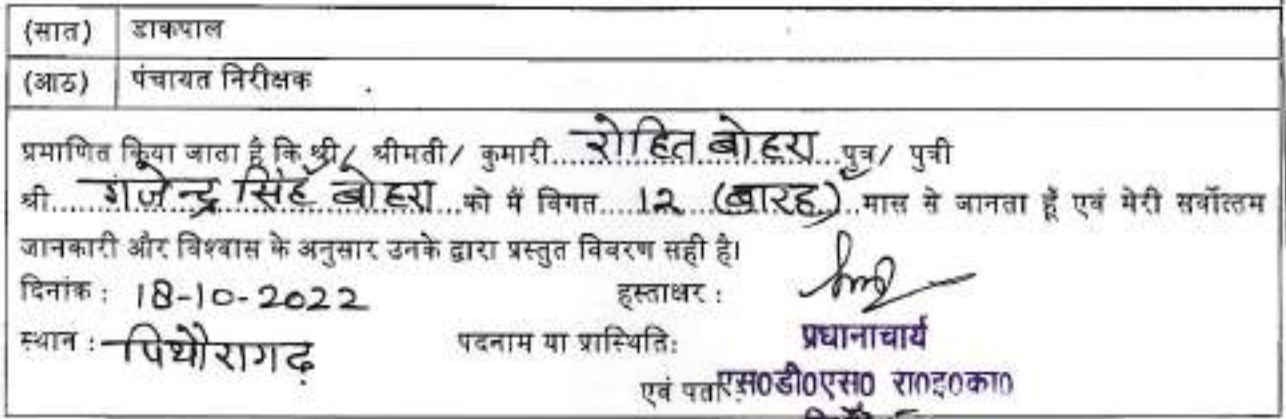 (सात) डाकपाल
(आठ) पंचायत निरीक्षक
प्रमाणित किया जाता है कि श्री/ श्रीमती/ कुमारी....रोहित बोहरा....पुत्र/ पुत्री
श्री.....गजेन्द्र सिंह बोहरा....को मैं विगत....12 (बारह)..मास से जानता हूँ एवं मेरी सर्वोत्तम
जानकारी और विश्वास के अनुसार उनके द्वारा प्रस्तुत विवरण सही है।
दिनांक : 18-10-2022 हस्ताक्षर :
स्थान : पिथौरागढ़ पदनाम या प्रास्थिति: प्रधानाचार्य
एवं पता: एस0डी0एस0 रा0इ0का0